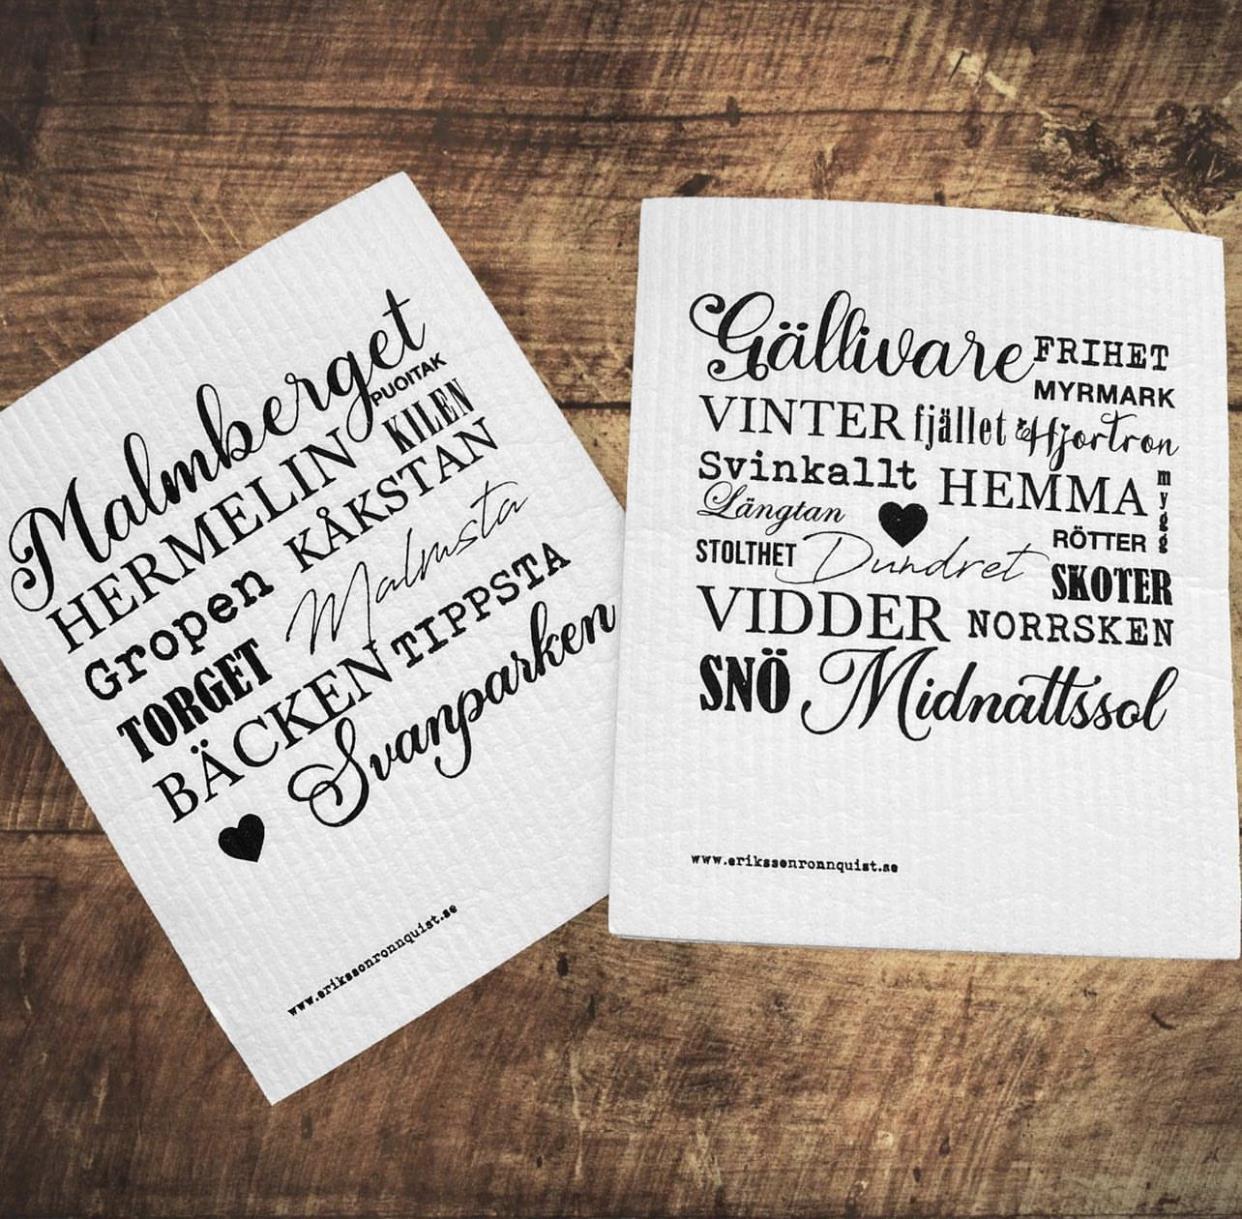 Malmberget
PUOITAK
HERMELIN KILEN
Gropen KÅKSTAN
TORGET Malmsta
BÄCKEN TIPPSTA
Svanparken
www.erikssonronnquist.se
Gällivare FRIHET
MYRMARK
VINTER fjället & Hjortron
Svinkallt HEMMA mygg
Längtan
STOLTHET Dundret RÖTTER
SKOTER
VIDDER NORRSKEN
SNÖ Midnattssol
www.erikssonronnquist.se